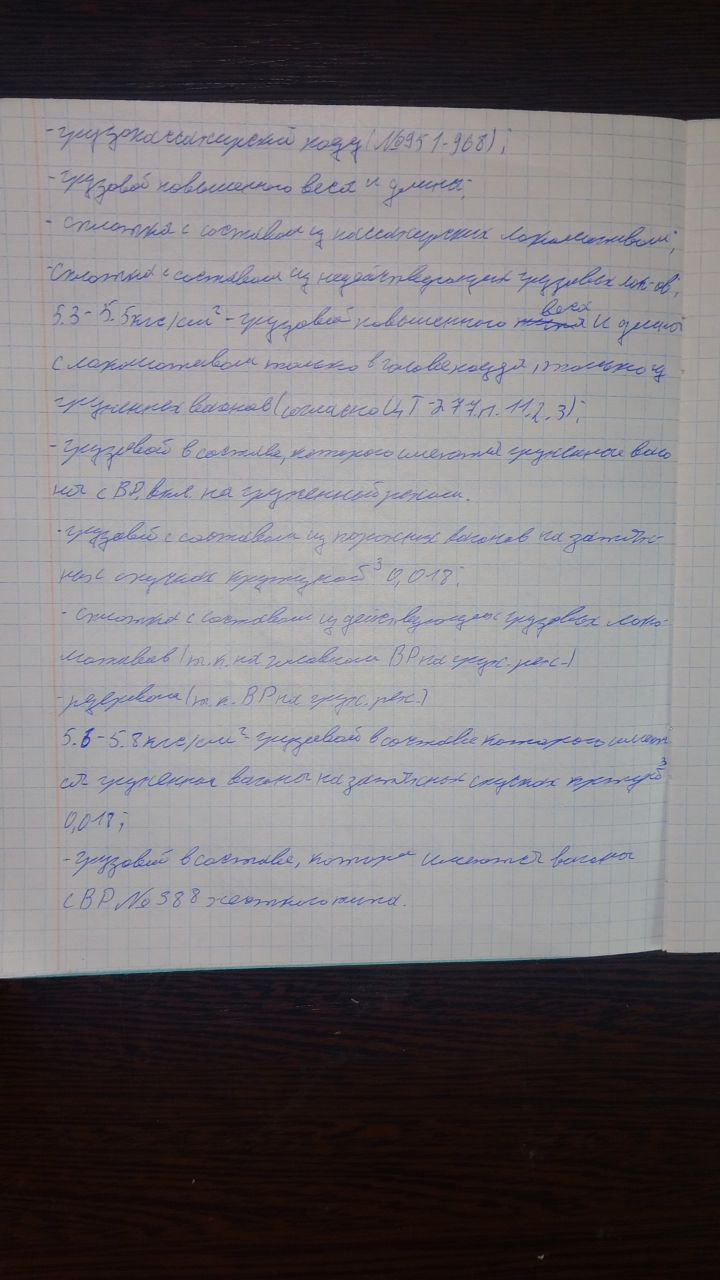 - грузопассажирский ходу (№951-968);
- грузовой повышенного веса и длины;
- сплотка с составом из пассажирских локомотивов;
- Сплотка с составом из недействующих грузовых лок-ов;
5.3-5.5кгс/см² - грузовой повышенного веса и длины
с локомотивом только в голове поезда, и только из
груженных вагонов (согласно ЦТ-277 п. 11.2.3);
- грузовой в составе, которого имеются груженные ваго
ны с ВР, вкл. на груженный режим.
- грузовой с составом из порожних вагонов на затяж-
ных спусках крутизной ³ 0,018;
- сплотка с составом из действующих грузовых локо-
мотивов (т.к. на головном ВР на груж. реж.)
- резервом (т.к. ВР на груж. реж.)
5.6-5.8кгс/см² - грузовой в составе которого имеют
ся груженные вагоны на затяжных спусках ³
0,018;
- грузовой в составе, которого имеются вагоны
с ВР №388 жесткого типа.